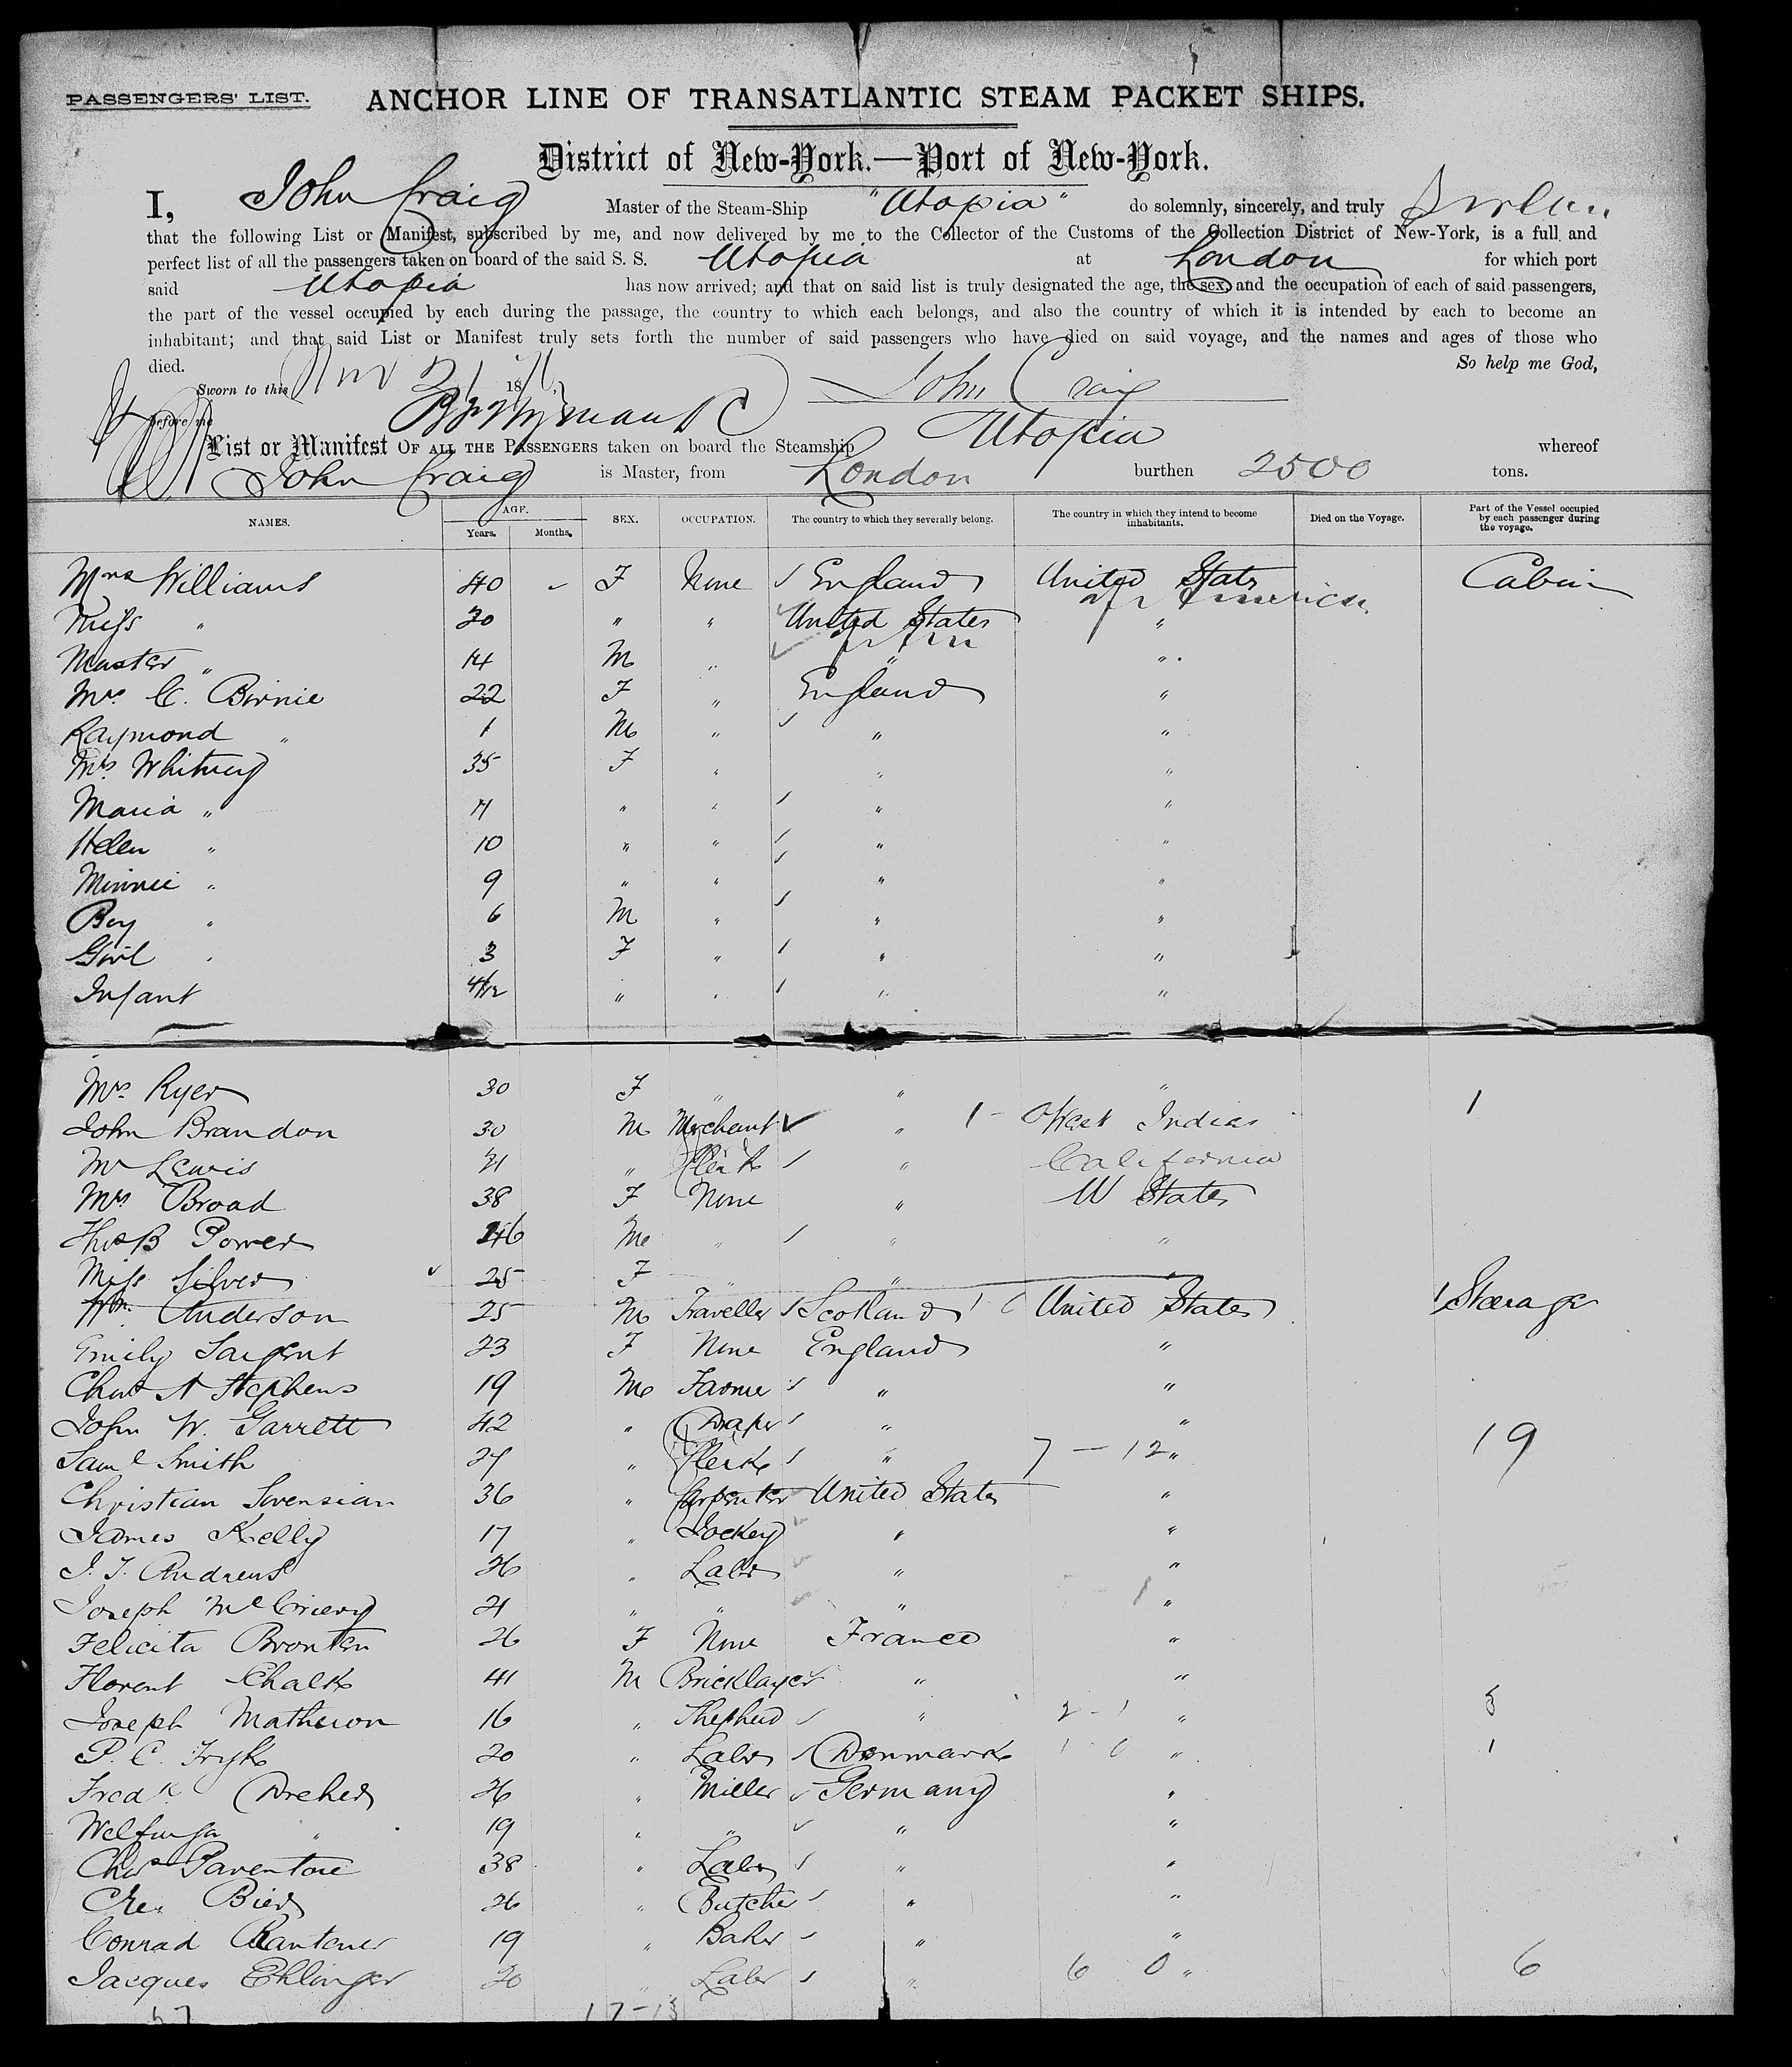 PASSENGERS' LIST. ANCHOR LINE OF TRANSATLANTIC STEAM PACKET SHIPS.
District of New-York.—Port of New-York.
I, John Craig Master of the Steam-Ship "Utopia" do solemnly, sincerely, and truly
that the following List or Manifest, subscribed by me, and now delivered by me to the Collector of the Customs of the Collection District of New-York, is a full and
perfect list of all the passengers taken on board of the said S. S. Utopia at London for which port
said Utopia has now arrived; and that on said list is truly designated the age, the sex, and the occupation of each of said passengers,
the part of the vessel occupied by each during the passage, the country to which each belongs, and also the country of which it is intended by each to become an
inhabitant; and that said List or Manifest truly sets forth the number of said passengers who have died on said voyage, and the names and ages of those who
died. So help me God,
Sworn to this Nov 21 18 John Craig
before me
List or Manifest OF ALL THE PASSENGERS taken on board the Steamship Utopia whereof
John Craig is Master, from London burthen 2500 tons.
NAMES. AGE. Years. Months. SEX. OCCUPATION. The country to which they severally belong. The country in which they intend to become inhabitants. Died on the Voyage. Part of the Vessel occupied by each passenger during the voyage.
Mrs Williams 40 - F None England United States of America Cabin
Miss " 20 " " United States "
Master " 14 M " " "
Mrs. C. Birnie 22 F " England "
Raymond " 1 M " " "
Mrs. Whitney 35 F " " "
Maria " 11 " " " "
Helen " 10 " " " "
Minnie " 9 " " " "
Boy " 6 M " " "
Girl " 3 F " " "
Infant 4/12 " " " "
Mrs. Ryer 30 F " " " 1
John Brandon 30 M Merchant " 1 - West Indias
Mr Lewis 21 " Clerk " California
Mrs. Broad 38 F None " U States
Thos B Power 46 M " " "
Miss Silver 25 F " "
Wm. Anderson 25 M Traveller Scotland United States Steerage
Emily Sargent 23 F None England "
Chas A Stephens 19 M Farmer " "
John W. Garrett 42 " Draper " "
Saml Smith 27 " Clerk " 7 - 12 " 19
Christian Svensian 36 " Carpenter United States "
James Kelly 17 " Jockey " "
J. T. Andrews 26 " Labr " "
Joseph McCrievy 21 " " " 1 "
Felicita Bronten 26 F None France "
Florent Chalk 41 M Bricklayer " "
Joseph Mathewon 16 " Shepherd " 2 - 1 " 3
P. C. Fryk 20 " Labr Denmark 1 0 " 1
Fredk Dreher 26 " Miller Germany "
19 " " " "
Chas Paventore 38 " Labr " "
Bier 26 " Butcher " "
Conrad 19 " Baker " "
Jacques Ehlinger 20 " Labr " 6 0 " 6
57 17-13